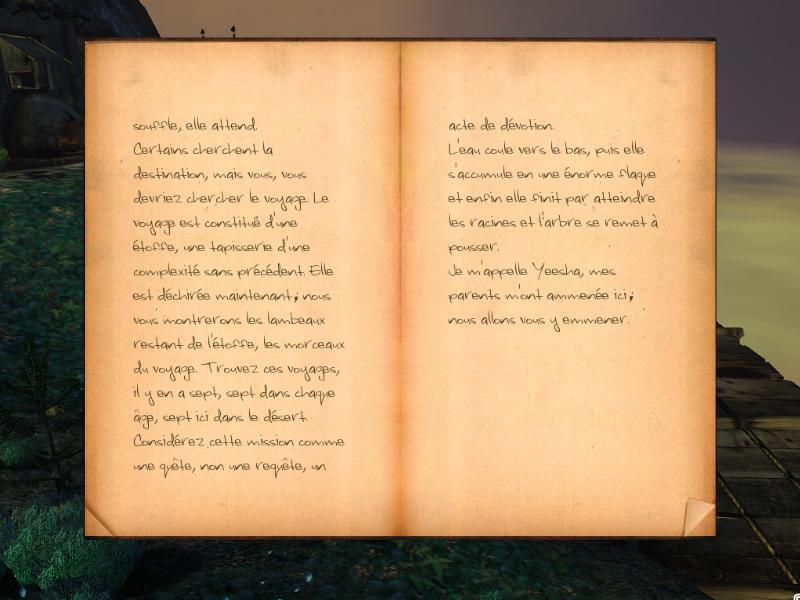 souffle, elle attend.
Certains cherchent la
destination, mais vous, vous
devriez chercher le voyage. Le
voyage est constitué d'une
étoffe, une tapisserie d'une
complexité sans précédent. Elle
est déchirée maintenant; nous
vous montrerons les lambeaux
restant de l'étoffe, les morceaux
du voyage. Trouvez ces voyages,
il y en a sept, sept dans chaque
âge, sept ici dans le désert.
Considérez cette mission comme
une quête, non une requête, un
acte de dévotion.
L'eau coule vers le bas, puis elle
s'accumule en une énorme flaque
et enfin elle finit par atteindre
les racines et l'arbre se remet à
pousser.
Je m'appelle Yeesha, mes
parents m'ont ammenée ici;
nous allons vous y emmener.